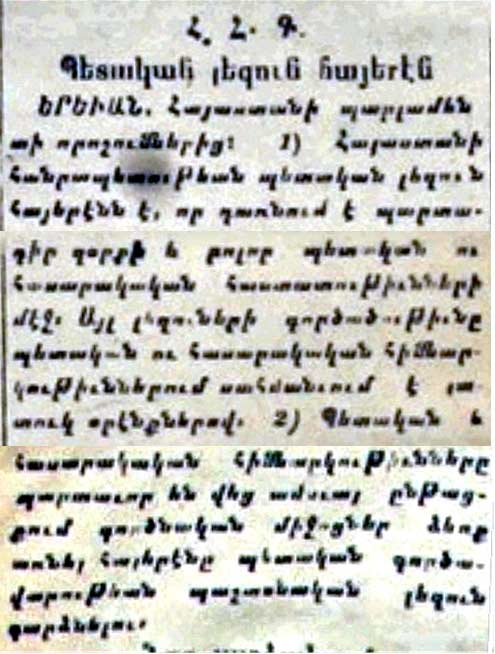 Հ. Հ. Գ.
Պետական լեզուն հայերէն
ԵՐԵՒԱՆ. Հայաստանի պարլամեն
տի որոշումներից։ 1) Հայաստանի
Հանրապետութեան պետական լեզուն
հայերէնն է, որ դառնում է պարտա-
դիր զօրքի և բոլոր պետական ու
հասարակական հաստատութիւնների
մէջ։ Այլ լեզուների գործածութիւնը
պետական ու հասարակական հիմնար-
կութիւններում սահմանւում է յա-
տուկ օրէնքներով։ 2) Պետական և
հասարակական հիմնարկութիւնները
պարտաւոր են վեց ամսուայ ընթաց-
քում գործնական միջոցներ ձեռք
առնել հայերէնը պետական գործա-
վարութեան պաշտօնական լեզուն
դարձնելու։